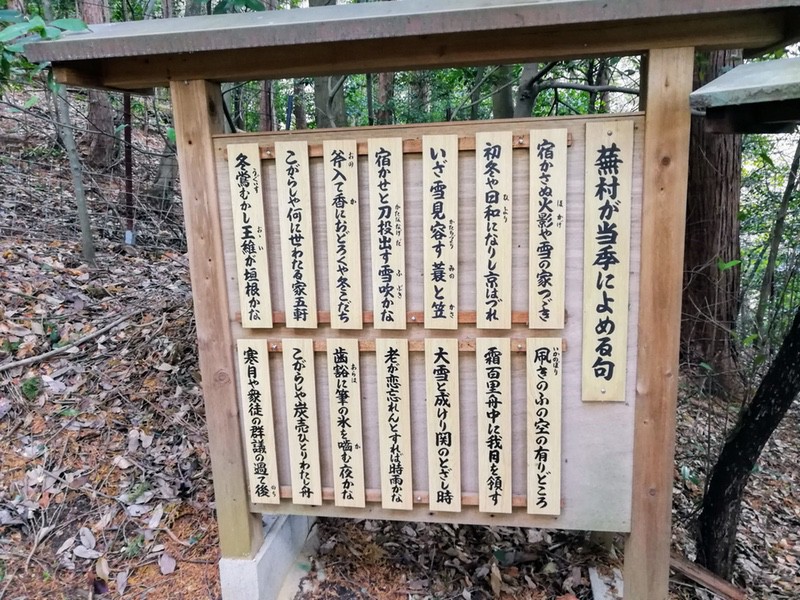 蕪村が当季によめる句
宿かさぬ火影や雪の家つづき
初冬や日和になりし京はづれ
いざ雪見容す蓑と笠
宿かせと刀投出す雪吹かな
斧入て香におどろくや冬こだち
こがらしや何に世わたる家五軒
冬鶯むかし王維が垣根かな
凧きのふの空の有りどころ
霜百里舟中に我月を領す
大雪と成けり関のとざし時
老が恋忘れんとすれば時雨かな
歯豁に筆の氷を噛む夜かな
こがらしや炭売ひとりわたし舟
寒月や衆徒の群議の過て後